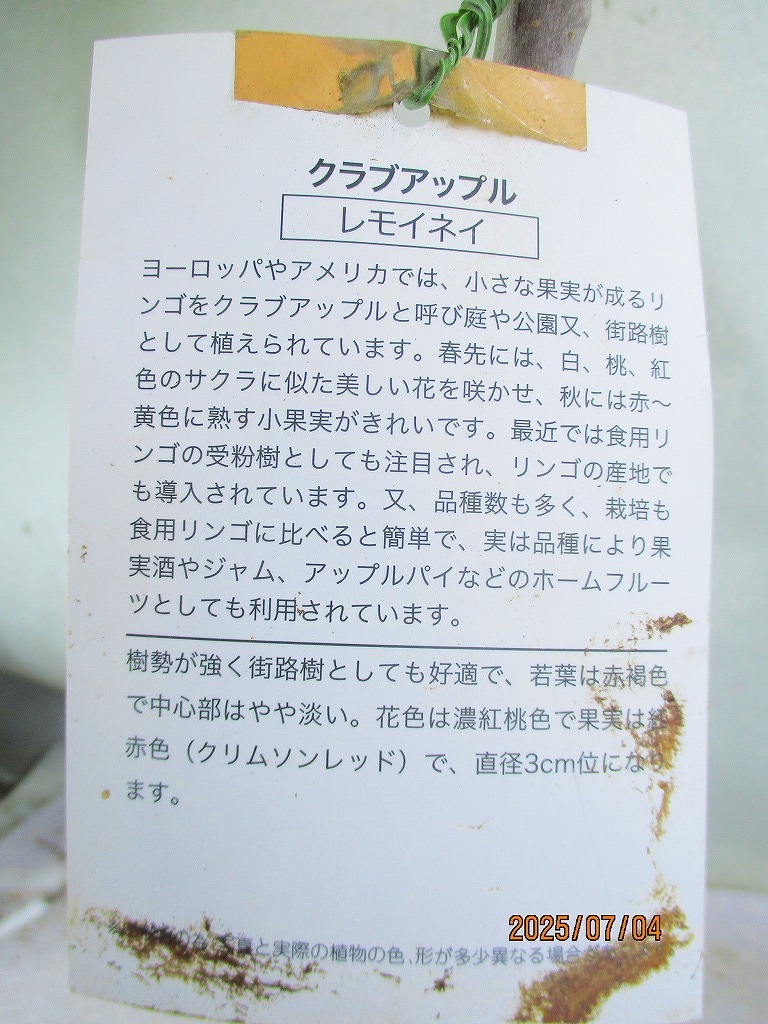 クラブアップル
レモイネイ
ヨーロッパやアメリカでは、小さな果実が成るリ
ンゴをクラブアップルと呼び庭や公園又、街路樹
として植えられています。春先には、白、桃、紅
色のサクラに似た美しい花を咲かせ、秋には赤〜
黄色に熟す小果実がきれいです。最近では食用リ
ンゴの受粉樹としても注目され、リンゴの産地で
も導入されています。又、品種数も多く、栽培も
食用リンゴに比べると簡単で、実は品種により果
実酒やジャム、アップルパイなどのホームフルー
ツとしても利用されています。
樹勢が強く街路樹としても好適で、若葉は赤褐色
で中心部はやや淡い。花色は濃紅桃色で果実は紅
赤色（クリムソンレッド）で、直径3cm位になり
ます。
真と実際の植物の色、形が多少異なる場合
2025/07/04